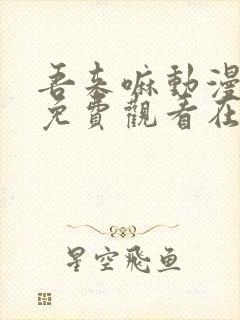 吾来嘛動漫
免費觀看在
星空飛鱼